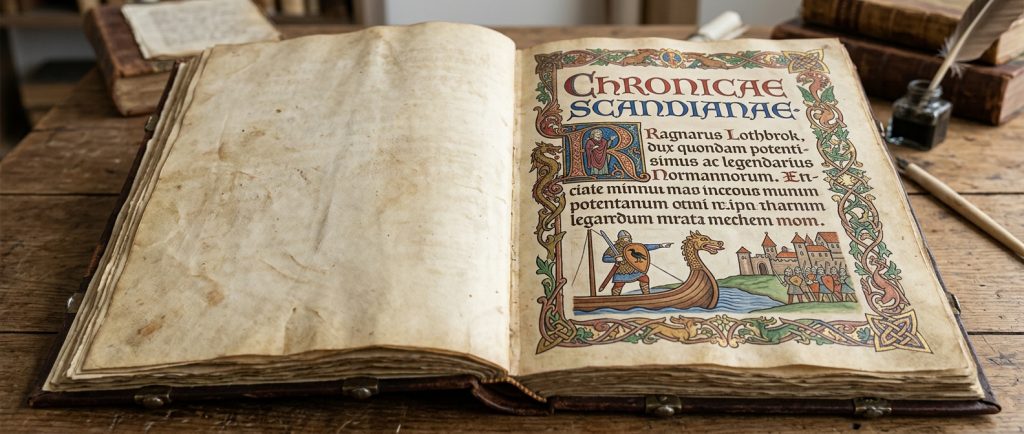 CHRONICAE
SCANDIANAE·
Ragnarus Lothbrok,
dux quondam potenti-
simus ac legendarius
Normannorum. Er-
ciate minnui mas inceous munum
potentanum otmi
legardum mrata mechem mom.